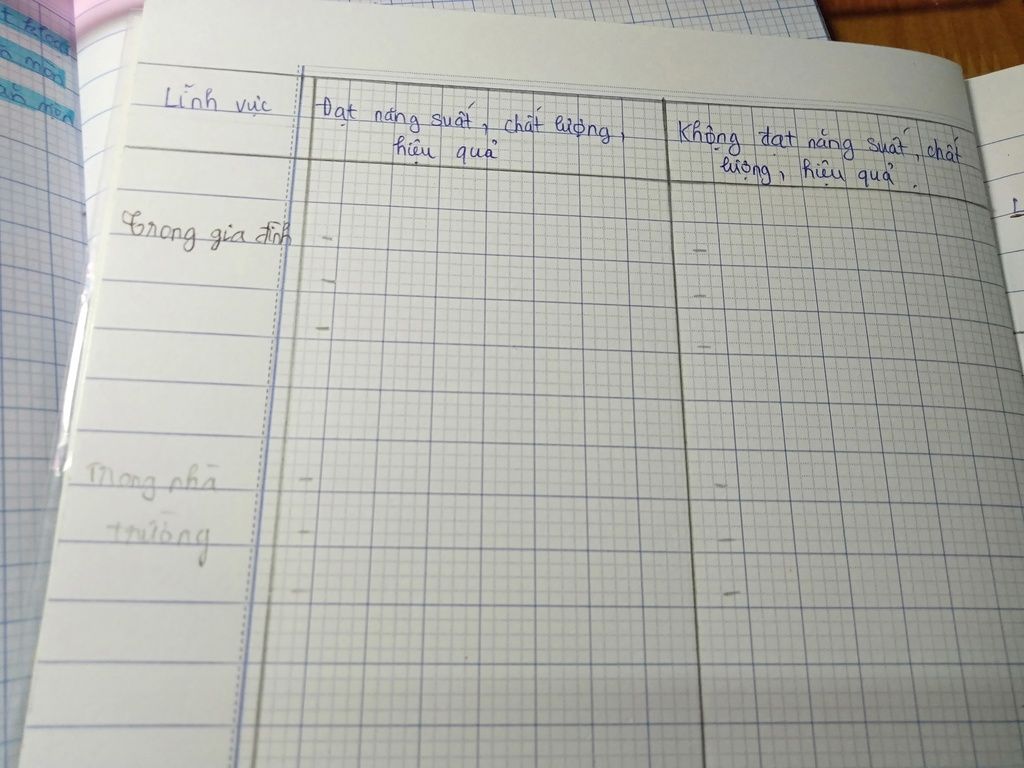 Lĩnh vực
Đạt năng suất, chất lượng,
hiệu quả
Không đạt năng suất, chất
lượng, hiệu quả.
Trong gia đình
-
-
-
-
-
-
Trong nhà
trường
-
-
-
-
-
-